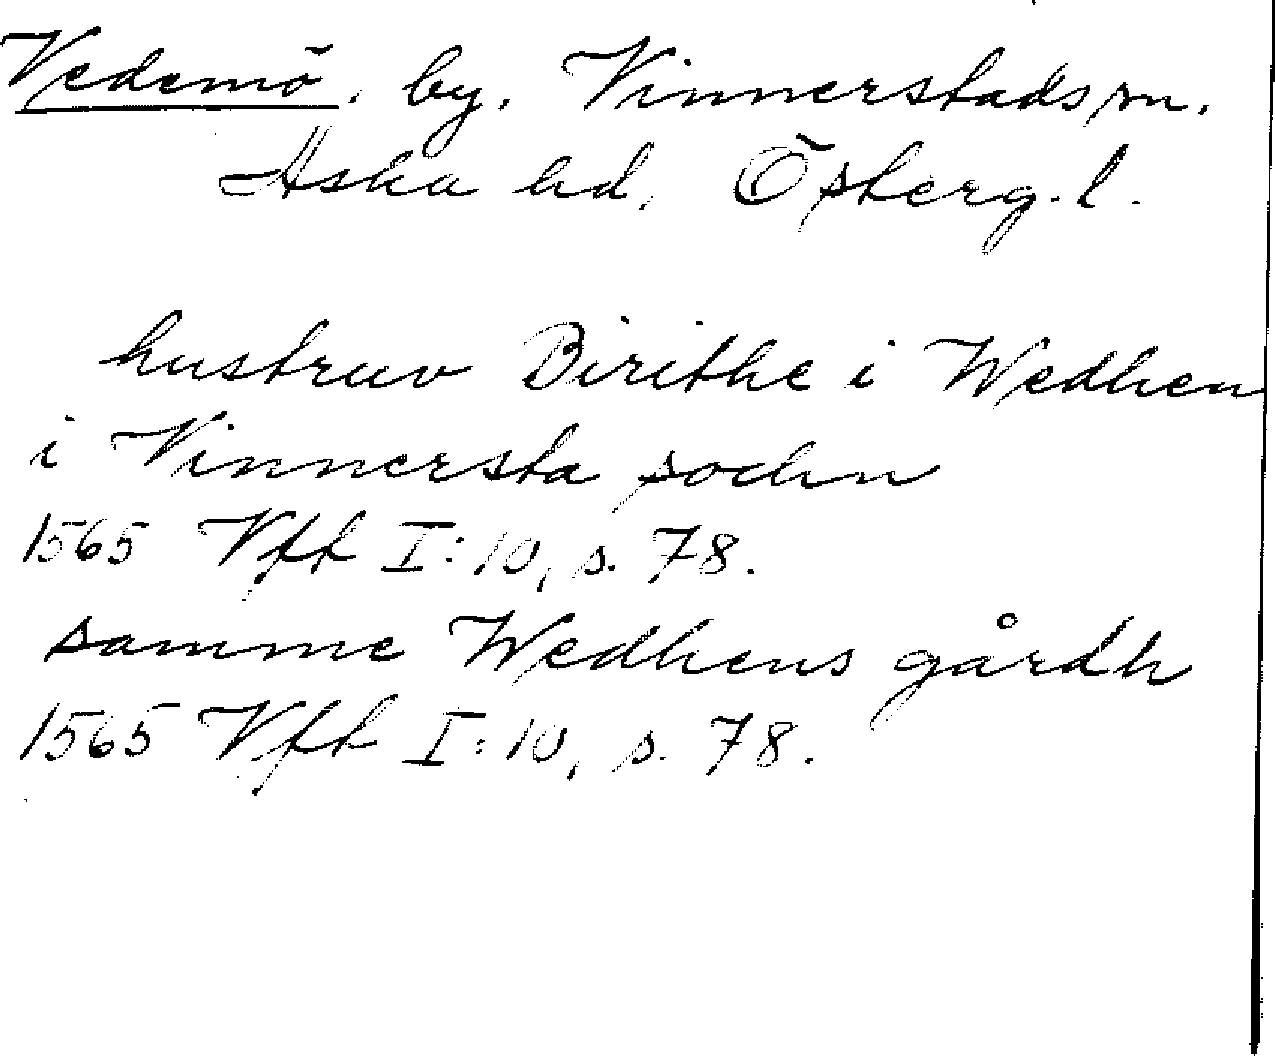 Vedemö, by, Vinnerstads sn.
Aska hd, Österg. l.
hustruv Birithe i Wedhen
i Vinnersta sochn
1565 Vfk I:10, s. 78.
samme Wedhens gårdh
1565 Vfk I:10, s. 78.